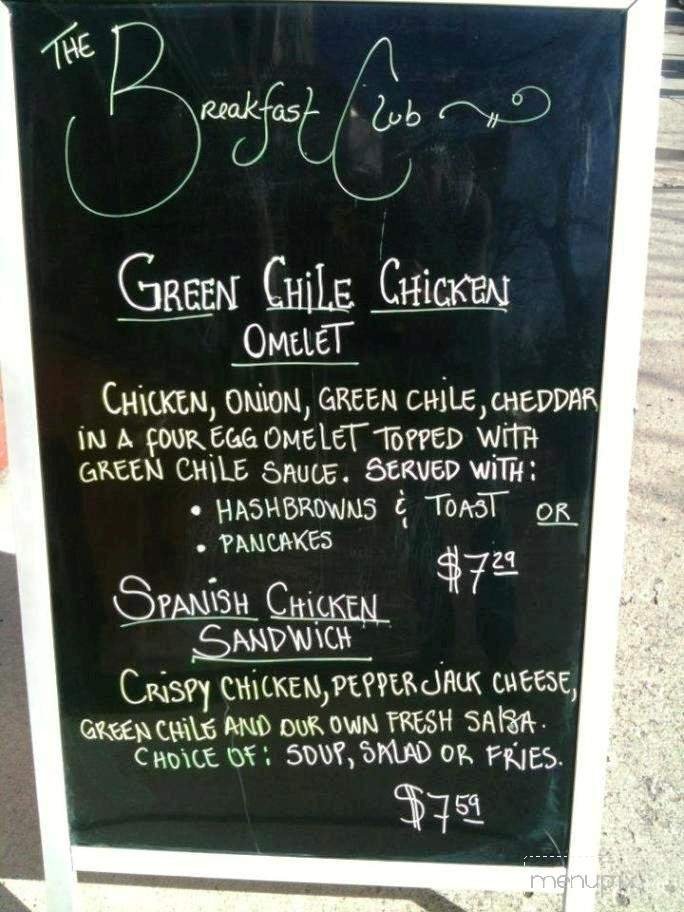 THE
Breakfast Club
GREEN CHiLE CHiCKEN
OMELET
CHiCKEN, ONiON, GREEN CHiLE, CHEDDAR
iN A fOUR EGG OMELET TOPPED WiTH
GREEN CHiLE SAUCE. SERVED WiTH:
• HASHBROWNS & TOAST OR
• PANCAKES
$7.29
SPANiSH CHiCKEN
SANDWiCH
CRiSPY CHiCKEN, PEPPER JACK CHEESE,
GREEN CHiLE AND OUR OWN FRESH SALSA.
CHOiCE OF: SOUP, SALAD OR FRiES.
$7.59